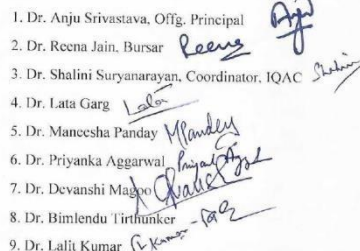 1. Dr. Anju Srivastava, Offg. Principal Anju
2. Dr. Reena Jain, Bursar Reena
3. Dr. Shalini Suryanarayan, Coordinator, IQAC Shalini
4. Dr. Lata Garg Lata
5. Dr. Maneesha Panday MPandey
6. Dr. Priyanka Aggarwal
7. Dr. Devanshi Magoo
8. Dr. Bimlendu Tirthunker
9. Dr. Lalit Kumar